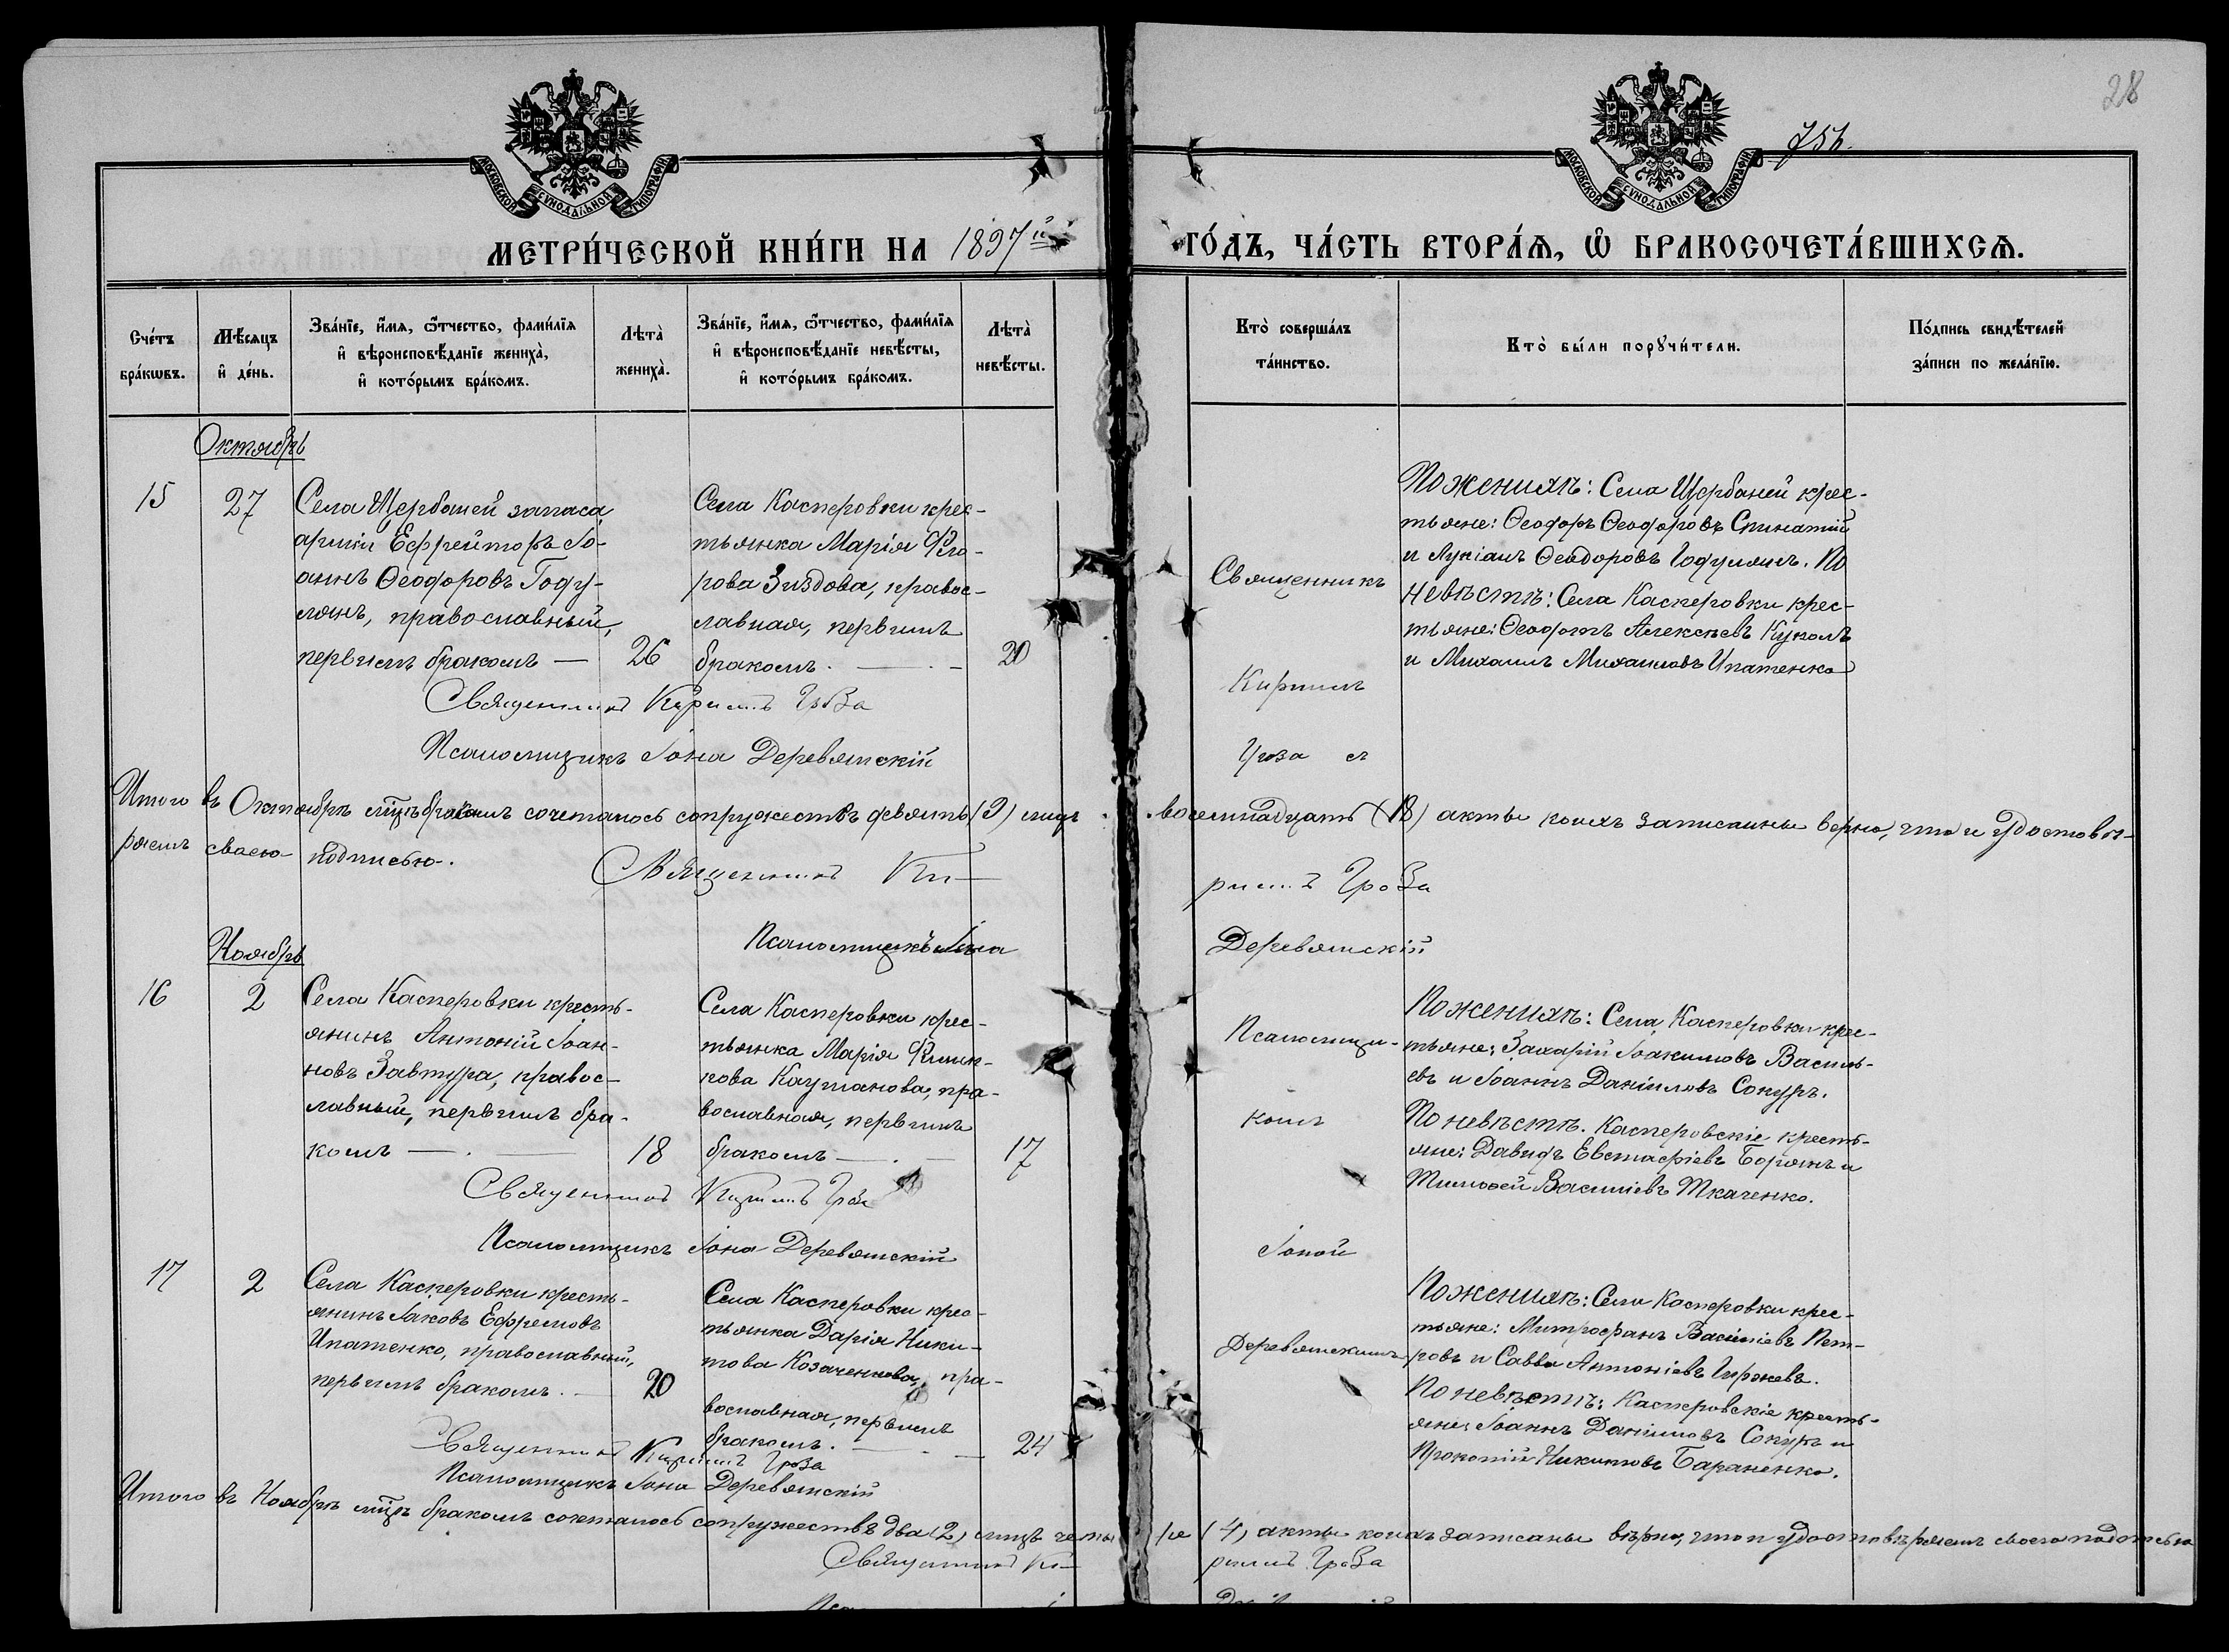 28
756.
МОСКОВСКОЙ СѴНОДАЛЬНОЙ ТИПОГРАФІИ
МОСКОВСКОЙ СѴНОДАЛЬНОЙ ТИПОГРАФІИ
МЕТРИ́ЧЕСКОЙ КНИ́ГИ НА 1897й ГО́ДЪ, ЧА́СТЬ ВТОРА́Ѧ, Ѽ БРАКОСОЧЕТА́ВШИХСѦ.
Сче́тъ бра́кѡвъ.
Мѣ́сѧцъ и҆ де́нь.
Зва́нїе, и҆́мѧ, ѻ҆́тчество, фами́лїѧ
и҆ вѣроисповѣ́данїе женихà,
и҆ кото́рымъ бра́комъ.
Лѣ́тà женихà.
Зва́нїе, и҆́мѧ, ѻ҆́тчество, фами́лїѧ
и҆ вѣроисповѣ́данїе невѣ́сты,
и҆ кото́рымъ бра́комъ.
Лѣ́тà невѣ́сты.
Кто̀ соверша́лъ та́инство.
Кто̀ бы́ли порꙋчи́тели.
По́дпись свидѣ́телей за́писи по жела́нїю.
Октябрь
15
27
Села Щербаней запаса
арміи Ефрейторъ Іо-
аннъ Ѳеодоровъ Году-
лянъ, православный,
первымъ бракомъ —
26
Села Касперовки крес-
тьянка Марія Фло-
рова Зиздова, правос-
лавная, первымъ
бракомъ. —
20
Священникъ
Кириллъ
Гроза
Поженихѣ: Села Щербаней крес-
тьяне: Ѳеодоръ Ѳеодоровъ Спинатій
и Лукіанъ Ѳеодоровъ Годулянъ. По
невѣстѣ: Села Касперовки крес-
тьяне: Ѳеодотъ Алексѣевъ Куколъ
и Михаилъ Михаиловъ Ипатенко
Священникъ Кириллъ Гроза
Псаломщикъ Іона Деревянскій
Итого въ Октябрѣ мцѣ бракомъ сочеталось супружествъ девять (9) лицъ восемнадцать (18) акты коихъ записанны верно, что и удостовѣ-
ряемъ своею подписью.
Священникъ Кириллъ Гроза
Псаломщикъ Іона Деревянскій
Ноябрь
16
2
Села Касперовки кресть-
янинъ Антоній Іоан-
новъ Завтура, правос-
лавный, первымъ бра-
комъ —
18
Села Касперовки крес-
тьянка Марія Филип-
пова Кауманова, пра-
вославная, первымъ
бракомъ —
17
Псаломщи-
комъ
Іоной
Деревянскимъ
Поженихѣ: Села Касперовки крес-
тьяне: Захарій Іоакимовъ Василь-
евъ и Іоаннъ Даніиловъ Сокуръ.
Поневѣстѣ. Касперовскіе кресть-
яне: Давидъ Евстафіевъ Борянъ и
Тимоѳей Василіевъ Ткаченко.
Священникъ Кириллъ Гроза
Псаломщикъ Іона Деревянскій
17
2
Села Касперовки кресть-
янинъ Іаковъ Ефремовъ
Ипатенко, православный,
первымъ бракомъ. —
20
Села Касперовки крес-
тьянка Дарія Ники-
това Козаченкова, пра-
вославная, первымъ
бракомъ. —
24
Поженихѣ: Села Касперовки крес-
тьяне: Митрофанъ Василіевъ Пет-
ровъ и Савва Антоніевъ Гиржевъ.
Поневѣстѣ: Касперовскіе кресть-
яне: Іоаннъ Даніиловъ Сокуръ и
Прокопій Никитовъ Бараненко.
Священникъ Кириллъ Гроза
Псаломщикъ Іона Деревянскій
Итого въ Ноябрѣ мцѣ бракомъ сочеталось супружествъ два (2) лицъ четыре (4) акты коихъ записаны вѣрно, что и удостовѣряемъ своею подписью
Священникъ Кириллъ Гроза